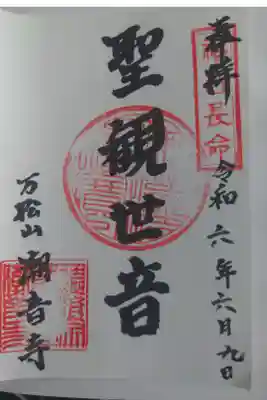 奉拝
長命
令和六年六月九日
聖観世音
万松山 潮音寺